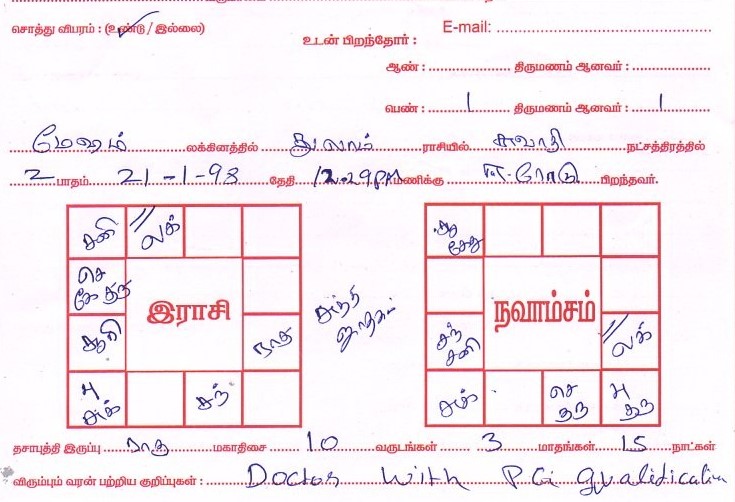 சொத்து விபரம் : (உண்டு / இல்லை) E-mail:
உடன் பிறந்தோர் :
ஆண் : திருமணம் ஆனவர் :
பெண் : 1 திருமணம் ஆனவர் : 1
மேஷம் லக்கினத்தில் துலாம் ராசியில் சுவாதி நட்சத்திரத்தில்
2 பாதம் 21-1-98 தேதி 12.29 PM மணிக்கு ஈரோடு பிறந்தவர்.
சனி லக்
செ
இராசி
நவாம்சம்
சூ
லக்
சந்
சனி
சுக்
சந்
செ
தசாபுத்தி இருப்பு ராகு மகாதிசை 10 வருடங்கள் 3 மாதங்கள் 15 நாட்கள்
விரும்பும் வரன் பற்றிய குறிப்புகள் : Doctor with PG qualification